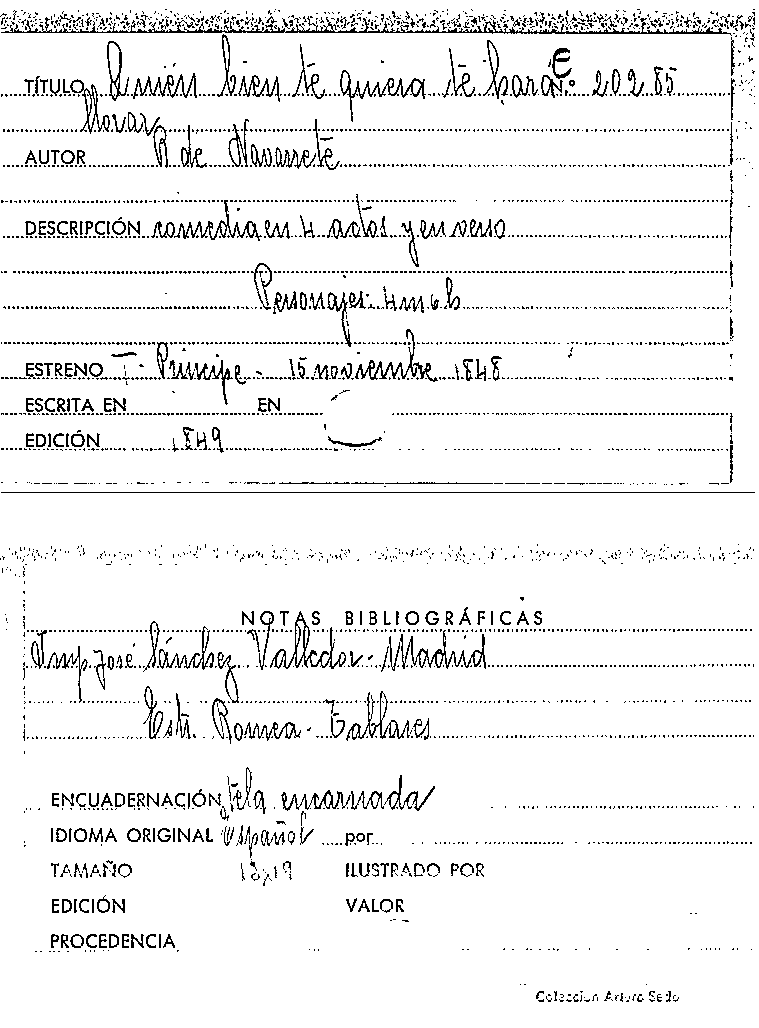 TÍTULO Quién bien te quiera te hará Nº 202.85
llorar
AUTOR R de Navarrete
DESCRIPCIÓN comedia en 4 actos y en verso
Personajes- 4 m 6 h
ESTRENO T- Príncipe - 15 noviembre 1848
ESCRITA EN EN
EDICIÓN 1849
NOTAS BIBLIOGRÁFICAS
Imp. José Sánchez Valledor - Madrid
Estr. Romea - Tablares
ENCUADERNACIÓN tela encarnada
IDIOMA ORIGINAL español por
TAMAÑO 13x19 ILUSTRADO POR
EDICIÓN VALOR
PROCEDENCIA
Colección Arturo Sedo